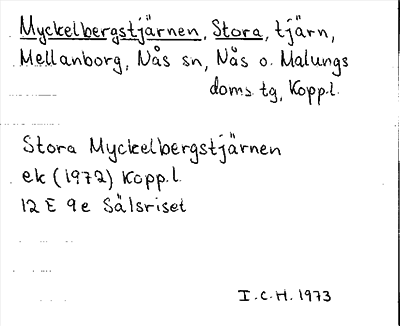 Myckelbergstjärnen, Stora, tjärn,
Mellanborg, Nås sn, Nås o. Malungs
doms. tg, Kopp.l.
Stora Myckelbergstjärnen
ek (1972) Kopp.l.
12 E 9e Sälsriset
I.C.H. 1973